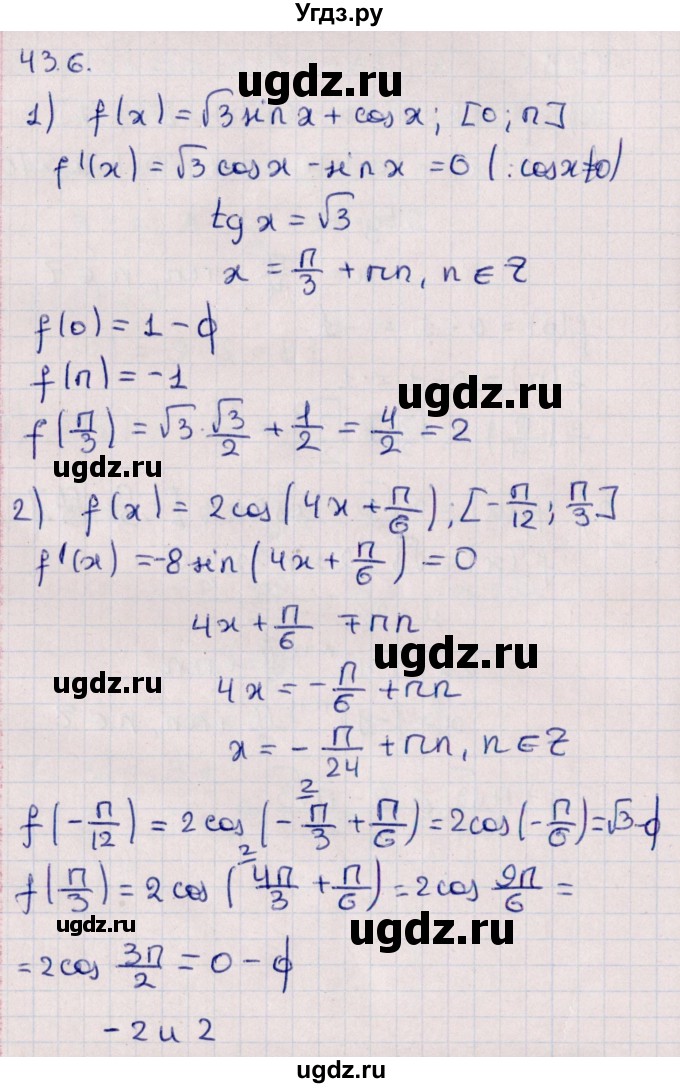 Угдз.ру
43.6.
ugdz.ru
1) f(x) = √3 sin x + cos x; [0; π]
f'(x) = √3 cos x - sin x = 0 (: cos x ≠ 0)
tg x = √3
x = π/3 + πn, n ∈ Z
f(0) = 1 - ф
f(π) = -1
ugdz.ru
f(π/3) = √3 · √3/2 + 1/2 = 4/2 = 2
ugdz.ru
2) f(x) = 2cos(4x + π/6); [-π/12; π/3]
f'(x) = -8 sin(4x + π/6) = 0
4x + π/6 = πn
ugdz.ru
ugdz.ru
4x = -π/6 + πn
x = -π/24 + πn, n ∈ Z
f(-π/12) = 2cos(-π/3 + π/6) = 2cos(-π/6) = √3 - ф
f(π/3) = 2cos(4π/3 + π/6) = 2cos 9π/6 =
ugdz.ru
ugdz.ru
= 2cos 3π/2 = 0 - ф
-2 и 2
ugdz.ru